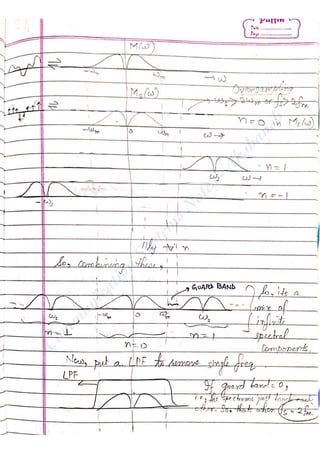 Date
Page
M(ω)
⇌ -ωm ωm → ω
Oversampling
Mδ(ω) → ωs > 2ωm or fs > 2fm
⇌ n=0 in Mδ(ω)
-ωm 0 ωm ω→
n=1
ωs ω→
n=-1
-ωs
IIly n
So, combining these,
GUARD BAND
So, its a
mix of
infinite
spectral
components.
-ωs -ωm 0 ωm ωs
n=-1 n=0 n=1
Now, put a LPF to remove single freq
LPF
If guard band=0,
i.e, the spectrums just touch each
other. So, that when fs = 2fm